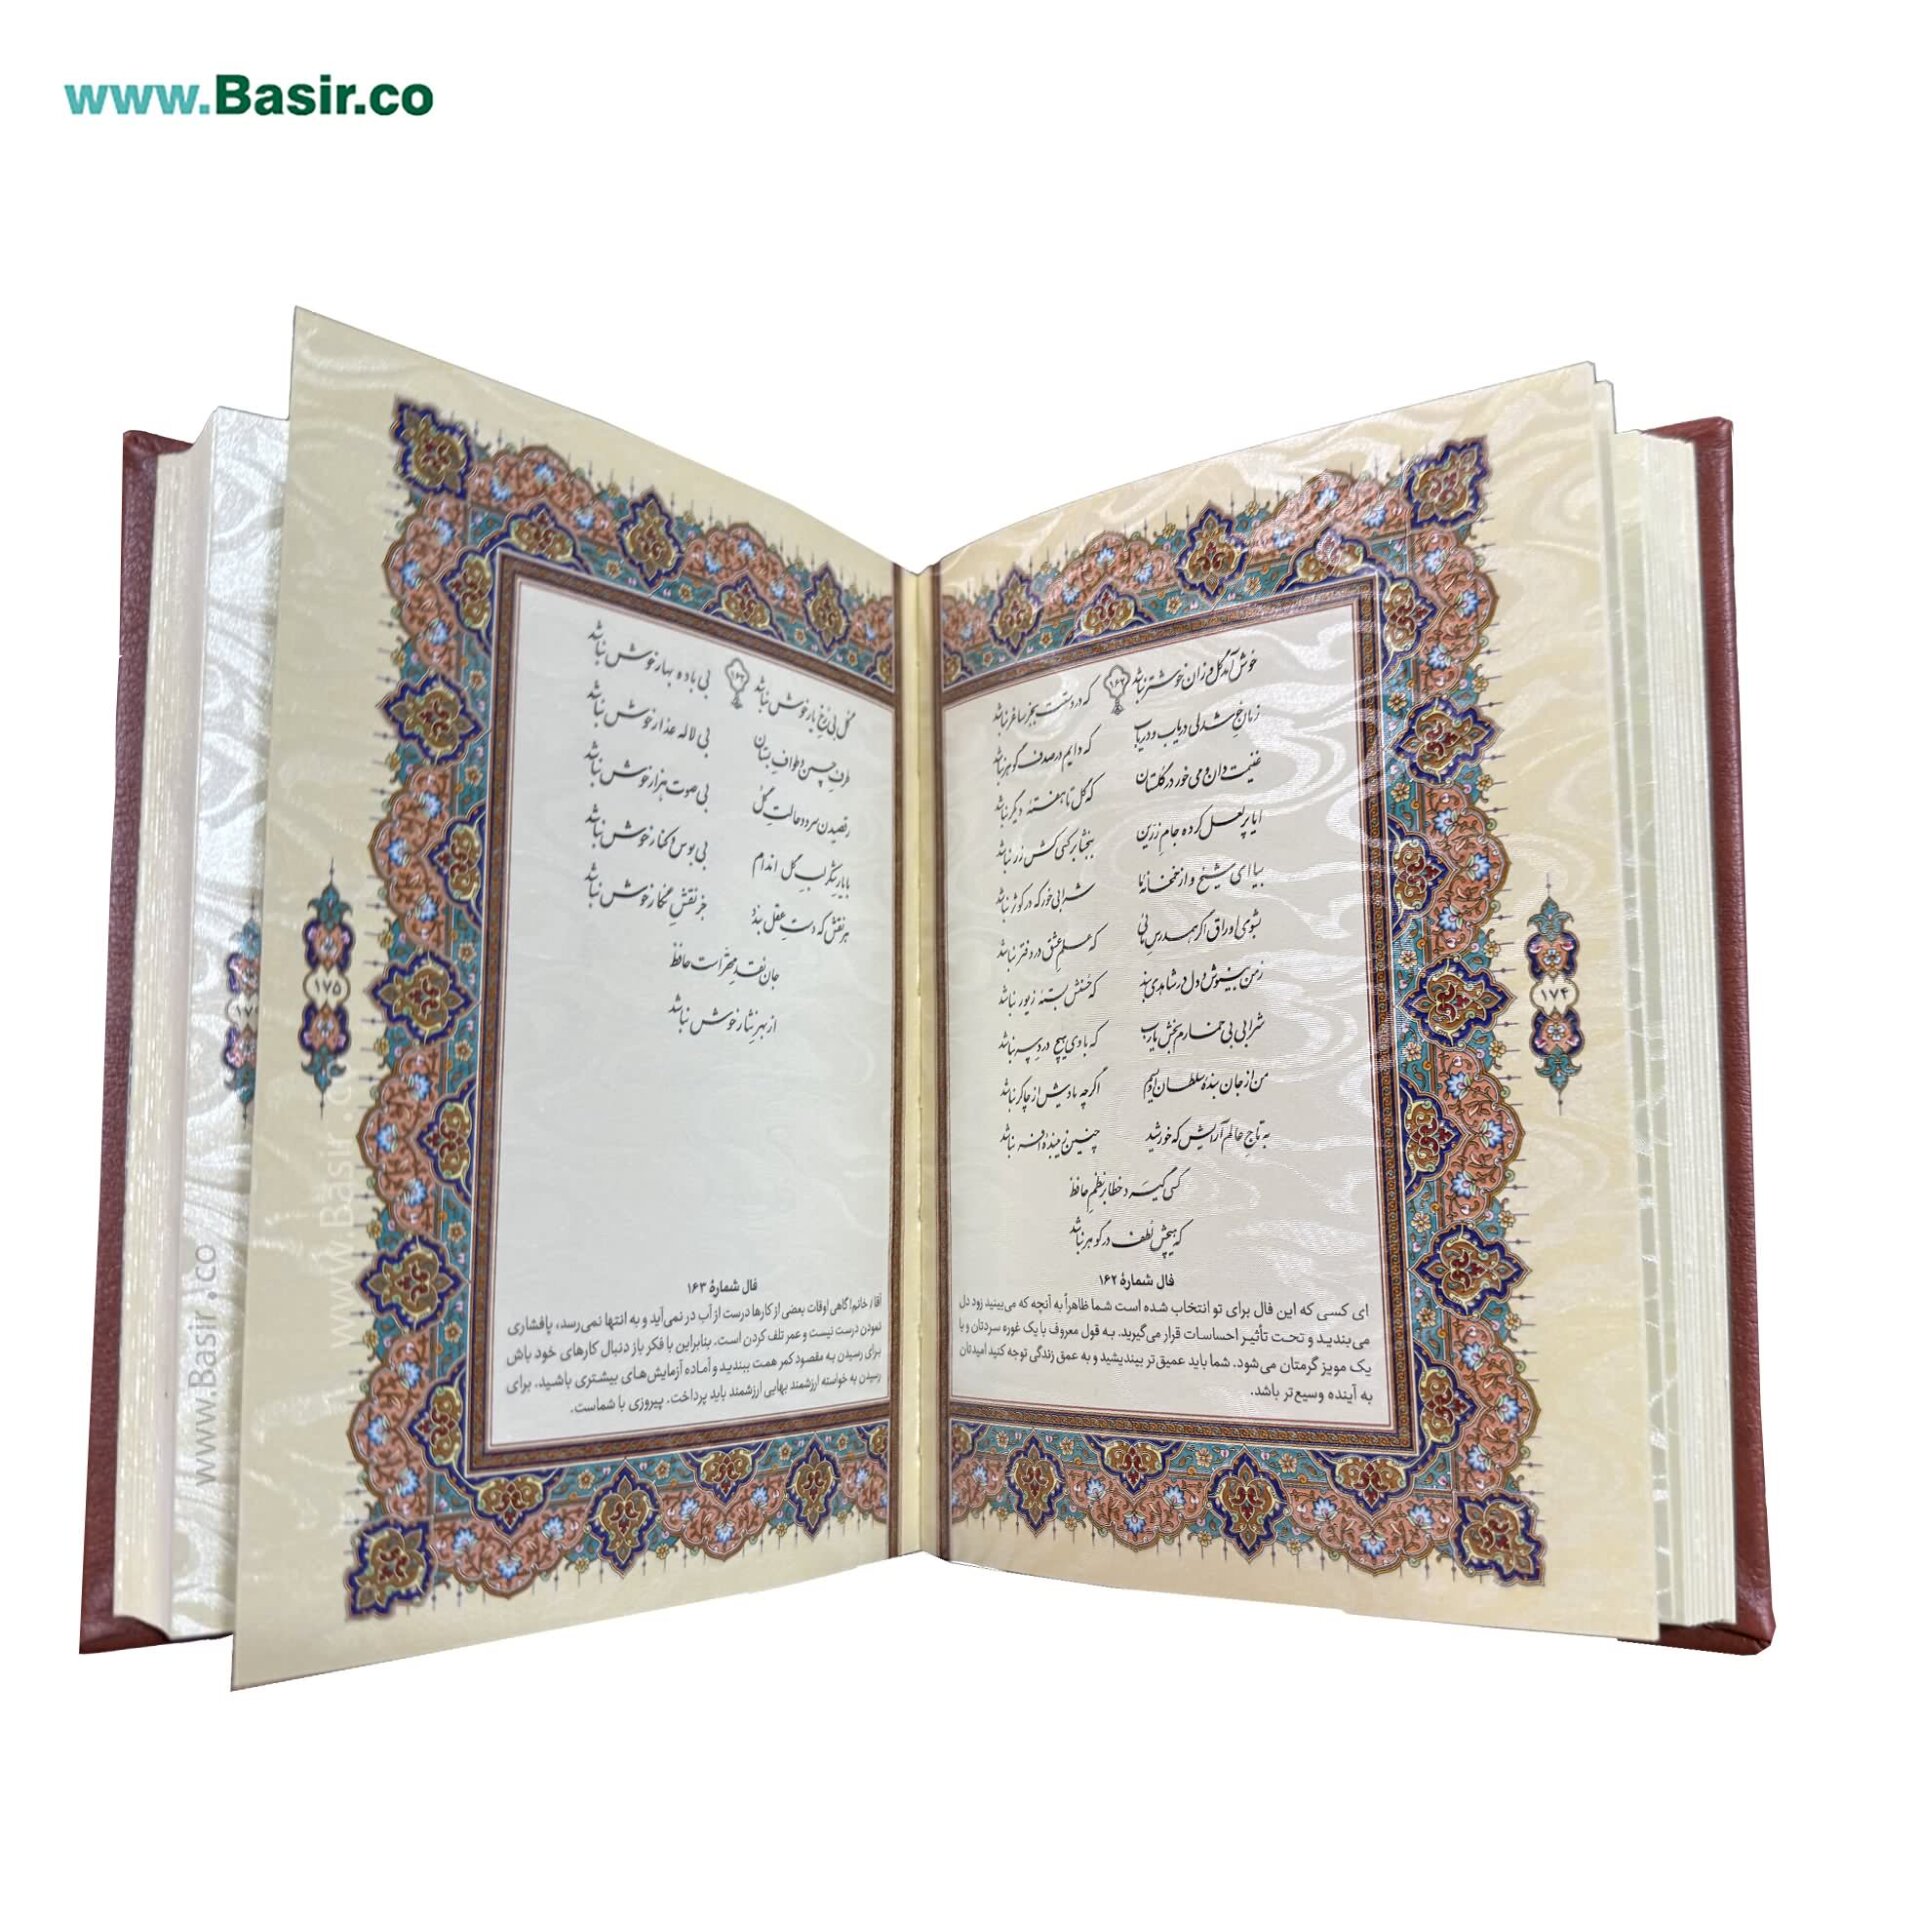 www.Basir.co
خوش آمد گل وزان خوشتر نباشد
۱۶۲
که در دستت بجز ساغر نباشد
زمان خوشدلی دریاب و دریاب
که دایم در صدف گوهر نباشد
غنیمت دان و می خور در گلستان
که گل تا هفتهٔ دیگر نباشد
ایا پر لعل کرده جام زرین
ببخشا بر کسی کش زر نباشد
بیا ای شیخ و از خمخانهٔ ما
شرابی خور که در کوثر نباشد
بشوی اوراق اگر همدرس مائی
که علم عشق در دفتر نباشد
ز من بنیوش و دل در شاهدی بند
که حُسنش بستهٔ زیور نباشد
شرابی بی خمارم بخش یارب
که با وی هیچ درد سر نباشد
من از جان بندهٔ سلطان اویسم
اگرچه یادش از چاکر نباشد
به تاج عالم آرایش که خورشید
چنین زیبندهٔ افسر نباشد
کسی گیرد خطا بر نظم حافظ
که هیچش لُطف در گوهر نباشد
فال شمارهٔ ۱۶۲
ای کسی که این فال برای تو انتخاب شده است شما ظاهراً به آنچه که می‌بینید زود دل
می‌بندید و تحت تأثیر احساسات قرار می‌گیرید. به قول معروف با یک غوره سردتان و با
یک مویز گرمتان می‌شود. شما باید عمیق‌تر بیندیشید و به عمق زندگی توجه کنید امیدتان
به آینده وسیع‌تر باشد.
۱۷۴
گل بی رُخ یار خوش نباشد
۱۶۳
بی باده بهار خوش نباشد
طرف چمن و طواف بستان
بی لاله عذار خوش نباشد
رقصیدن سرو و حالت گُل
بی صوت هزار خوش نباشد
با یار شکر لب گل اندام
بی بوس و کنار خوش نباشد
هر نقش که دست عقل بندد
جز نقش نگار خوش نباشد
جان نقد محقر است حافظ
از بهر نثار خوش نباشد
فال شمارهٔ ۱۶۳
آقا / خانم! گاهی اوقات بعضی از کارها درست از آب در نمی‌آید و به انتها نمی‌رسد، پافشاری
نمودن درست نیست و عمر تلف کردن است. بنابراین با فکر باز دنبال کارهای خود باش
برای رسیدن به مقصود کمر همت ببندید و آماده آزمایش‌های بیشتری باشید. برای
رسیدن به خواسته ارزشمند بهایی ارزشمند باید پرداخت. پیروزی با شماست.
۱۷۵
www.Basir.co
www.Basir.co